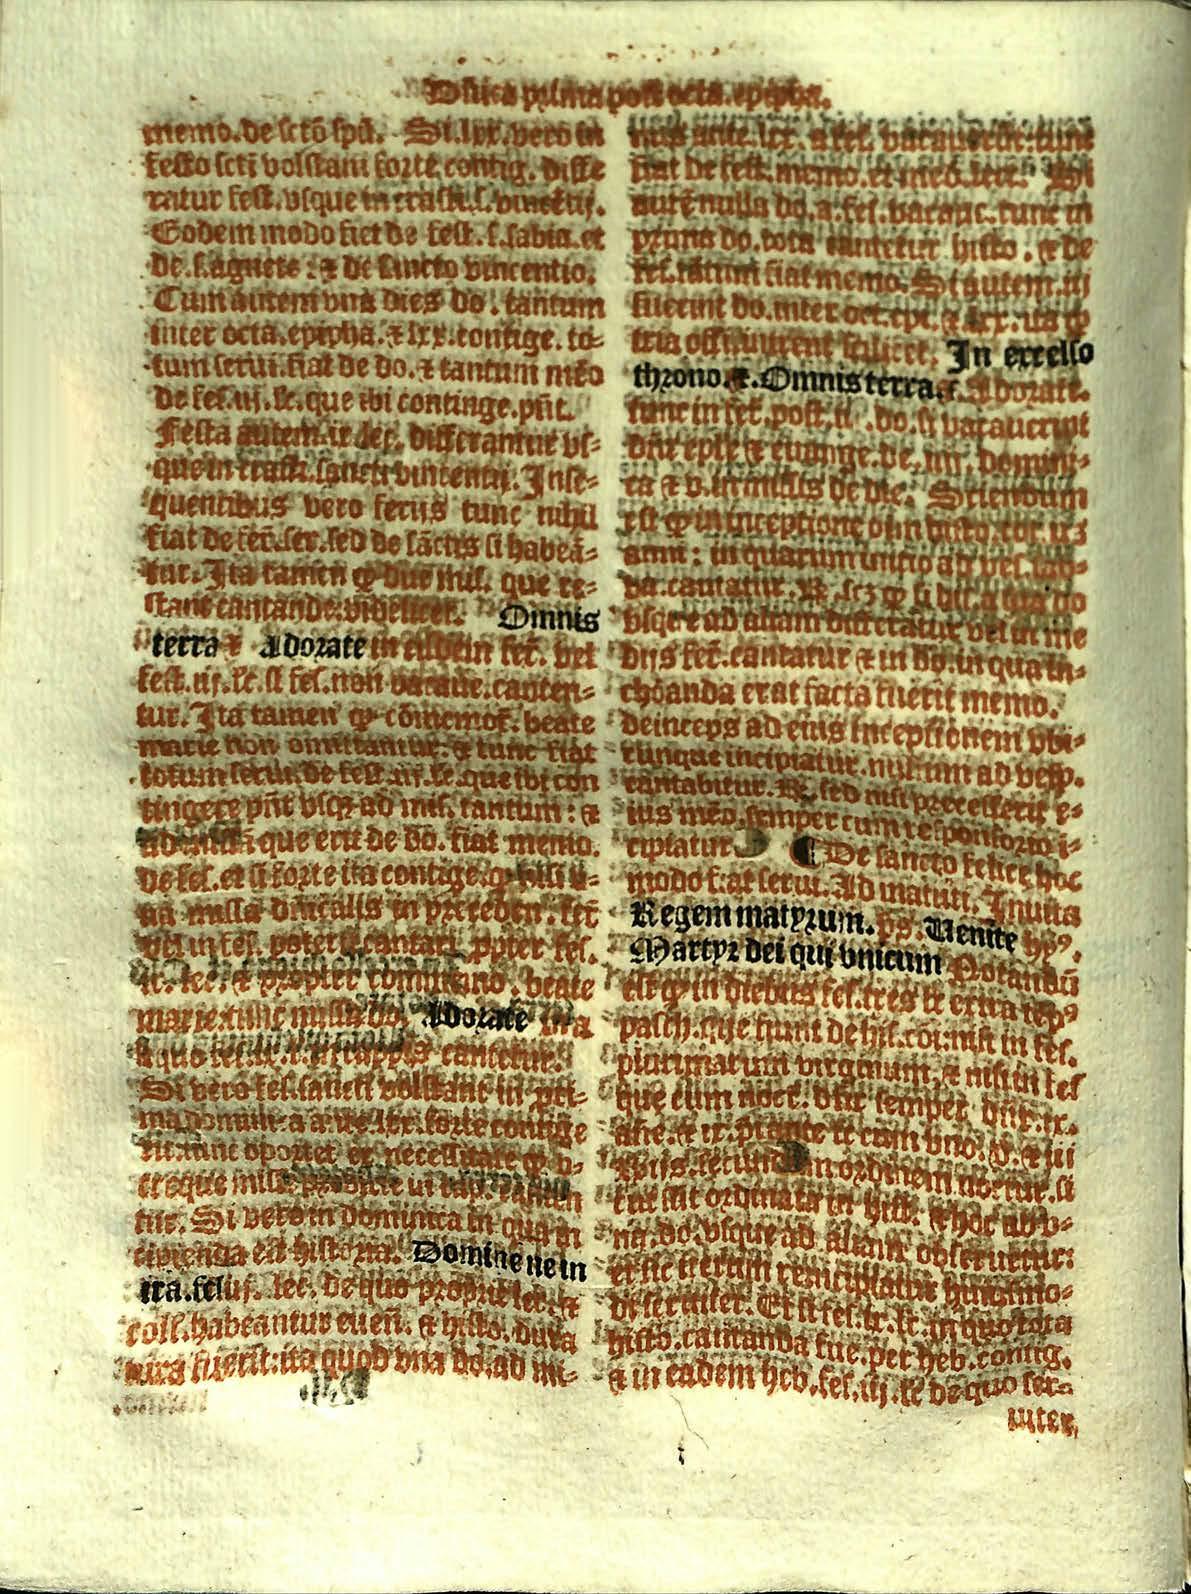 Dñica prima post octa. epipha.
memo. de sctō spū. Si .lxx. vero in
festo scti volstani forte contig. diffe
ratur fest. vsque in crasti. s. vincētij.
Eodem modo fiet de fest. s. fabia. et
de s. agnete : & de sancto vincentio.
Cum autem vna dies do. tantum
inter octa. epipha. & lxx. contige. to-
tum serui. fiat de do. & tantum mēo
de fes. iij. lc. que ibi continge. pñt.
Festa autem .ix. lec. differantur vs-
que in crasti. sancti vincentij. Inse-
quentibus vero ferijs tunc nihil
fiat de feř. ser. sed de sāctis si habeā-
tur. Ita tamen ꝙ due mis. que re-
stant cantande. videlicet. Omnis
terra & Adorate in eisdem feř. vel
fest. iij. lc. si fes. non vacaue. canten-
tur. Ita tamen ꝙ cōmemoř. beate
marie non omittantur: & tunc fiat
totum serui. de fest. iij. lc. que ibi con
tingere pñt vsqz ad mis. tantum : &
ad missā que erit de do. fiat memo.
de fes. et si forte ita contige. ꝙ nisi v-
na missa dñicalis in preceden. feř
vel in fes. poterit cantari ppter fes.
ix. lec. & propter commemo. beate
marie. tunc missa do. Adorate in a
liquo festo cantetur.
Si vero fes. sancti volstani in pri-
ma dominica ante .lxx. forte contige
rit. tunc oportet ex necessitate ꝙ v-
treque misse
tur. Si vero in dominica in qua in
cipienda est historia. Domine ne in
ira. fes. iij. lec. de quo proprie lec. &
coll. habeantur eueñ. & histo. dura
tura fuerit: ita quod vna do. ad mi-
nus ante .lxx. a fes. vacauerit: tunc
fiat de fest. memo. et med. lect. Si
autē nulla do. a fes. vacaue. tunc in
prima do. tota cantetur histo. & de
fes. tātum fiat memo. Si autem .iij
fuerint do. inter oct. epi. & lxx. ita ꝙ
tria offi. iurent scilicet. In excelso
throno. &. Omnis terra. & Adorate.
tunc in feř. post. ij. do. si vacauerint
dñr eple & euange. de .iiij. domini-
ca & v. in missis de die. Sciendum
est ꝙ in inceptione oīm histo. tocius
anni : in quarum initio ad ves. sab-
ba. cantatur. R. scz ꝙ si dif. a vna do
vsqze ad aliam differatur vel in me
dijs feř. cantatur & in do. in qua in-
choanda erat facta fuerit memo.
deinceps ad eius inceptionem vbi-
cunque incipiatur. nullum ad vesp.
cantabitur. R. sed nisi precesserit e-
ius meō. semper cum responsorio i-
cipiatur De sancto felice hoc
modo fiat serui. Ad matuti. Inuita
Regem martyrum. ps. Uenite hyº.
Martyr dei qui vnicum Notandū
est ꝙ in diebus fes. tres lc extra tēpº
pasch. que fiunt de his. coi. nisi in fes.
plurimarum virginum, & nisi in fes
que cum noct. dñr semper dñr. ix.
añe. & ix. ps. ante lc cum vno. v. & iij
vsijs. secundum ordinem noctur. si
cut sūt ordinata in hist. & hoc ab v-
na. do. vsque ad aliam obseruetur:
et sic iterum reincipiatur huiusmo-
di seruiter. Et si fes. ix. lc. in quo tota
histo. cantanda fue. per heb. contig.
& in eadem heb. fes. iij. lc de quo ser-
uiter,